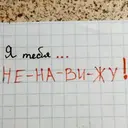 Я тебя...
НЕ-НА-ВИ-ЖУ!